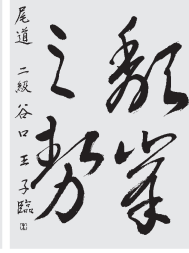 頽峯
之勢
尾道 二級 谷口王子臨